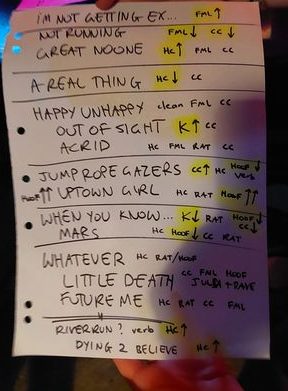 I'M NOT GETTING EX... FML↑
NOT RUNNING FML↓ CC↓
GREAT NOONE HC↑ FML CC
A REAL THING HC↓ CC
HAPPY UNHAPPY clean FML CC
OUT OF SIGHT K↑ CC
ACRID HC FML RAT CC
JUMP ROPE GAZERS CC↑ HC HOOF↓ verb
HOOF↑↑ UPTOWN GIRL HC RAT HOOF↑↑
WHEN YOU KNOW... K↓ RAT HOOF↓ CC↓
MARS HC HOOF↓ CC RAT
WHATEVER HC RAT/HOOF
LITTLE DEATH CC FML HOOF JULBA + RAVE
FUTURE ME HC RAT CC FML
RIVER RUN? verb HC↑
DYING 2 BELIEVE HC↑